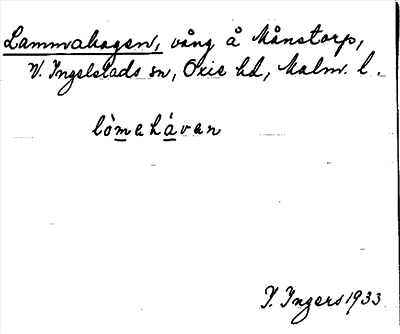 Lammahagen, vång å Månstorp,
V. Ingelstads sn, Oxie hd, Malm. l.
lò̱mahá̱van
I. Ingers 1933